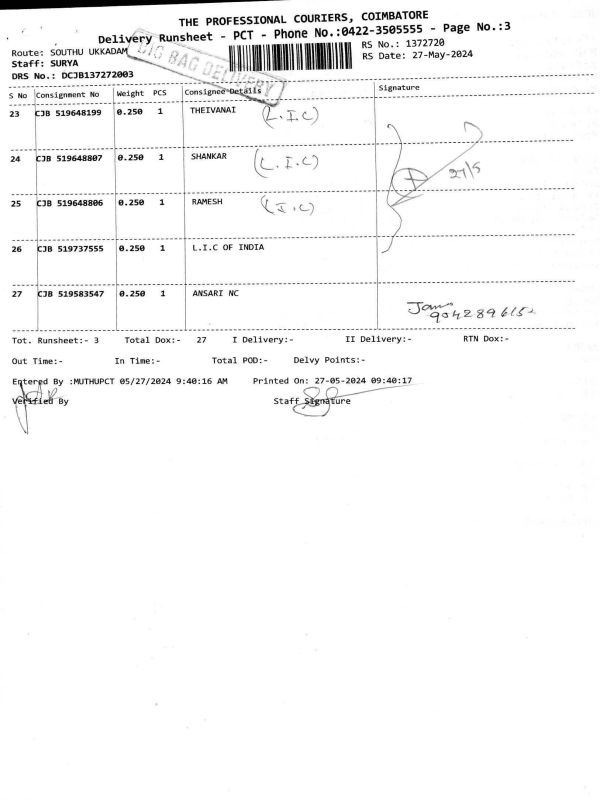 THE PROFESSIONAL COURIERS, COIMBATORE
Delivery Runsheet - PCT - Phone No.:0422-3505555 - Page No.:3
Route: SOUTHU UKKADAM RS No.: 1372720
Staff: SURYA RS Date: 27-May-2024
DRS No.: DCJB137272003
BIG BAG DELIVERY
S No Consignment No Weight PCS Consignee Details Signature
23 CJB 519648199 0.250 1 THEIVANAI (L.I.C)
24 CJB 519648807 0.250 1 SHANKAR (L.I.C) 27/5
25 CJB 519648806 0.250 1 RAMESH (I.C)
26 CJB 519737555 0.250 1 L.I.C OF INDIA
27 CJB 519583547 0.250 1 ANSARI NC
Tot. Runsheet:- 3 Total Dox:- 27 I Delivery:- II Delivery:- RTN Dox:-
Out Time:- In Time:- Total POD:- Delvy Points:-
Entered By :MUTHUPCT 05/27/2024 9:40:16 AM Printed On: 27-05-2024 09:40:17
Verified By Staff Signature